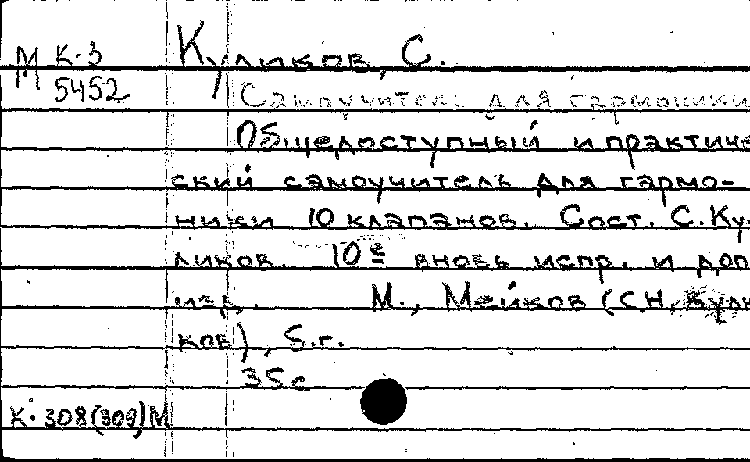 М К-3
5452
Куликов, С.
Самоучитель для гармоники
Общедоступный и практиче
ский самоучитель для гармо-
ники 10 клапанов. Сост. С. Ку-
ликов. 10е вновь испр. и доп
изд. М., Мейков (С.Н. Кули
ков), б.г.
35 с
К. 308(309)М